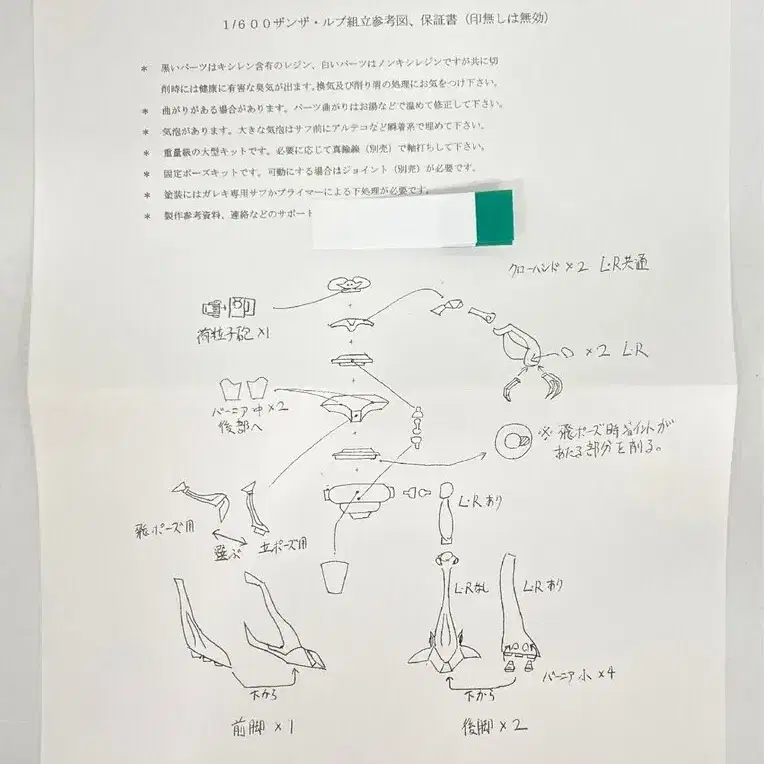 1/600ザンザ・ルブ組立参考図、保証書（印無しは無効）
＊ 黒いパーツはキシレン含有のレジン、白いパーツはノンキシレジンですが共に切
削時には健康に有害な臭気が出ます。換気及び削り屑の処理にお気をつけ下さい。
＊ 曲がりがある場合があります。パーツ曲がりはお湯などで温めて修正して下さい。
＊ 気泡があります。大きな気泡はサフ前にアルテコなど瞬着系で埋めて下さい。
＊ 重量級の大型キットです。必要に応じて真鍮線（別売）で軸打ちして下さい。
＊ 固定ポーズキットです。可動にする場合はジョイント（別売）が必要です。
＊ 塗装にはガレキ専用サフかプライマーによる下処理が必要です。
＊ 製作参考資料、連絡などのサポート
クローハンド×2 L・R共通
荷粒子砲×1
×2 L・R
バーニア中×2
後部へ
※飛ポーズ時ジョイントが
あたる部分を削る。
L・Rあり
飛ポーズ用
選ぶ
立ポーズ用
L・Rなし
L・Rあり
バーニア小×4
下から
下から
前脚×1
後脚×2